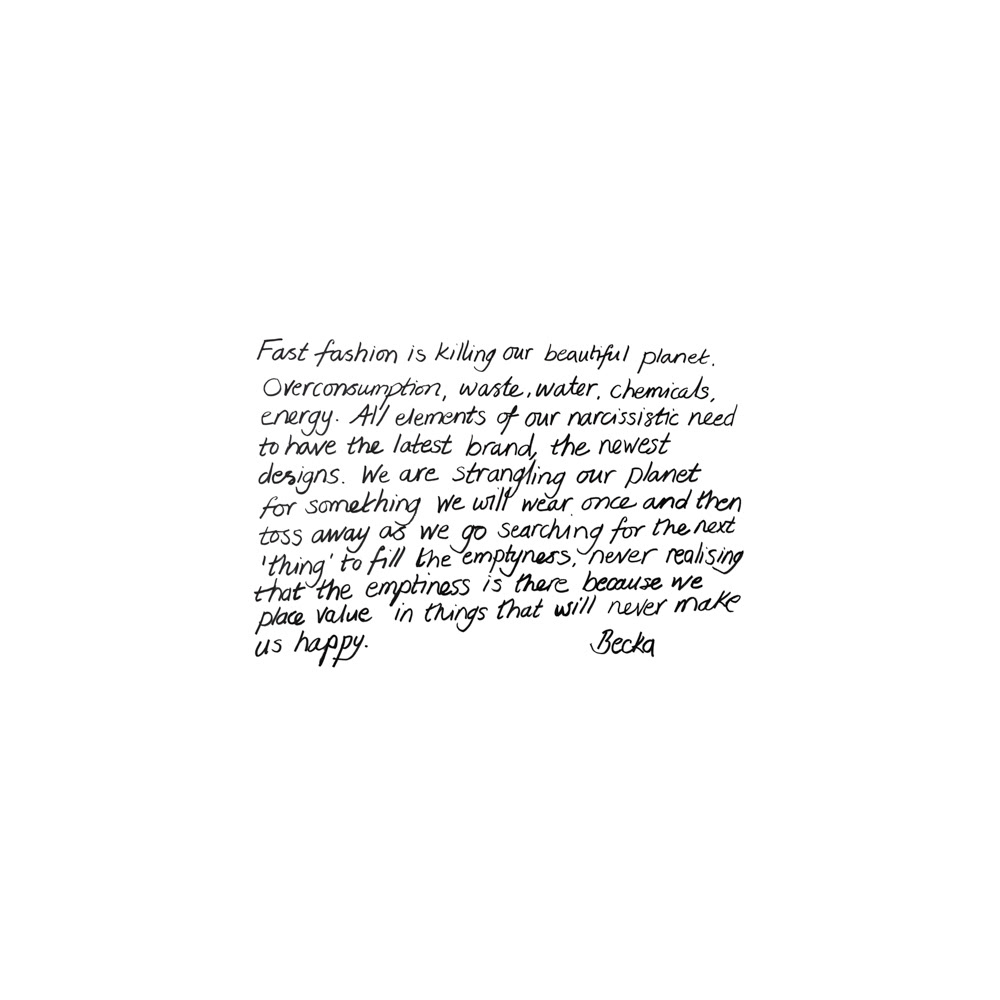 Fast fashion is killing our beautiful planet.
Overconsumption, waste, water, chemicals,
energy. All elements of our narcissistic need
to have the latest brand, the newest
designs. We are strangling our planet
for something we will wear once and then
toss away as we go searching for the next
'thing' to fill the emptyness, never realising
that the emptiness is there because we
place value in things that will never make
us happy. Becka